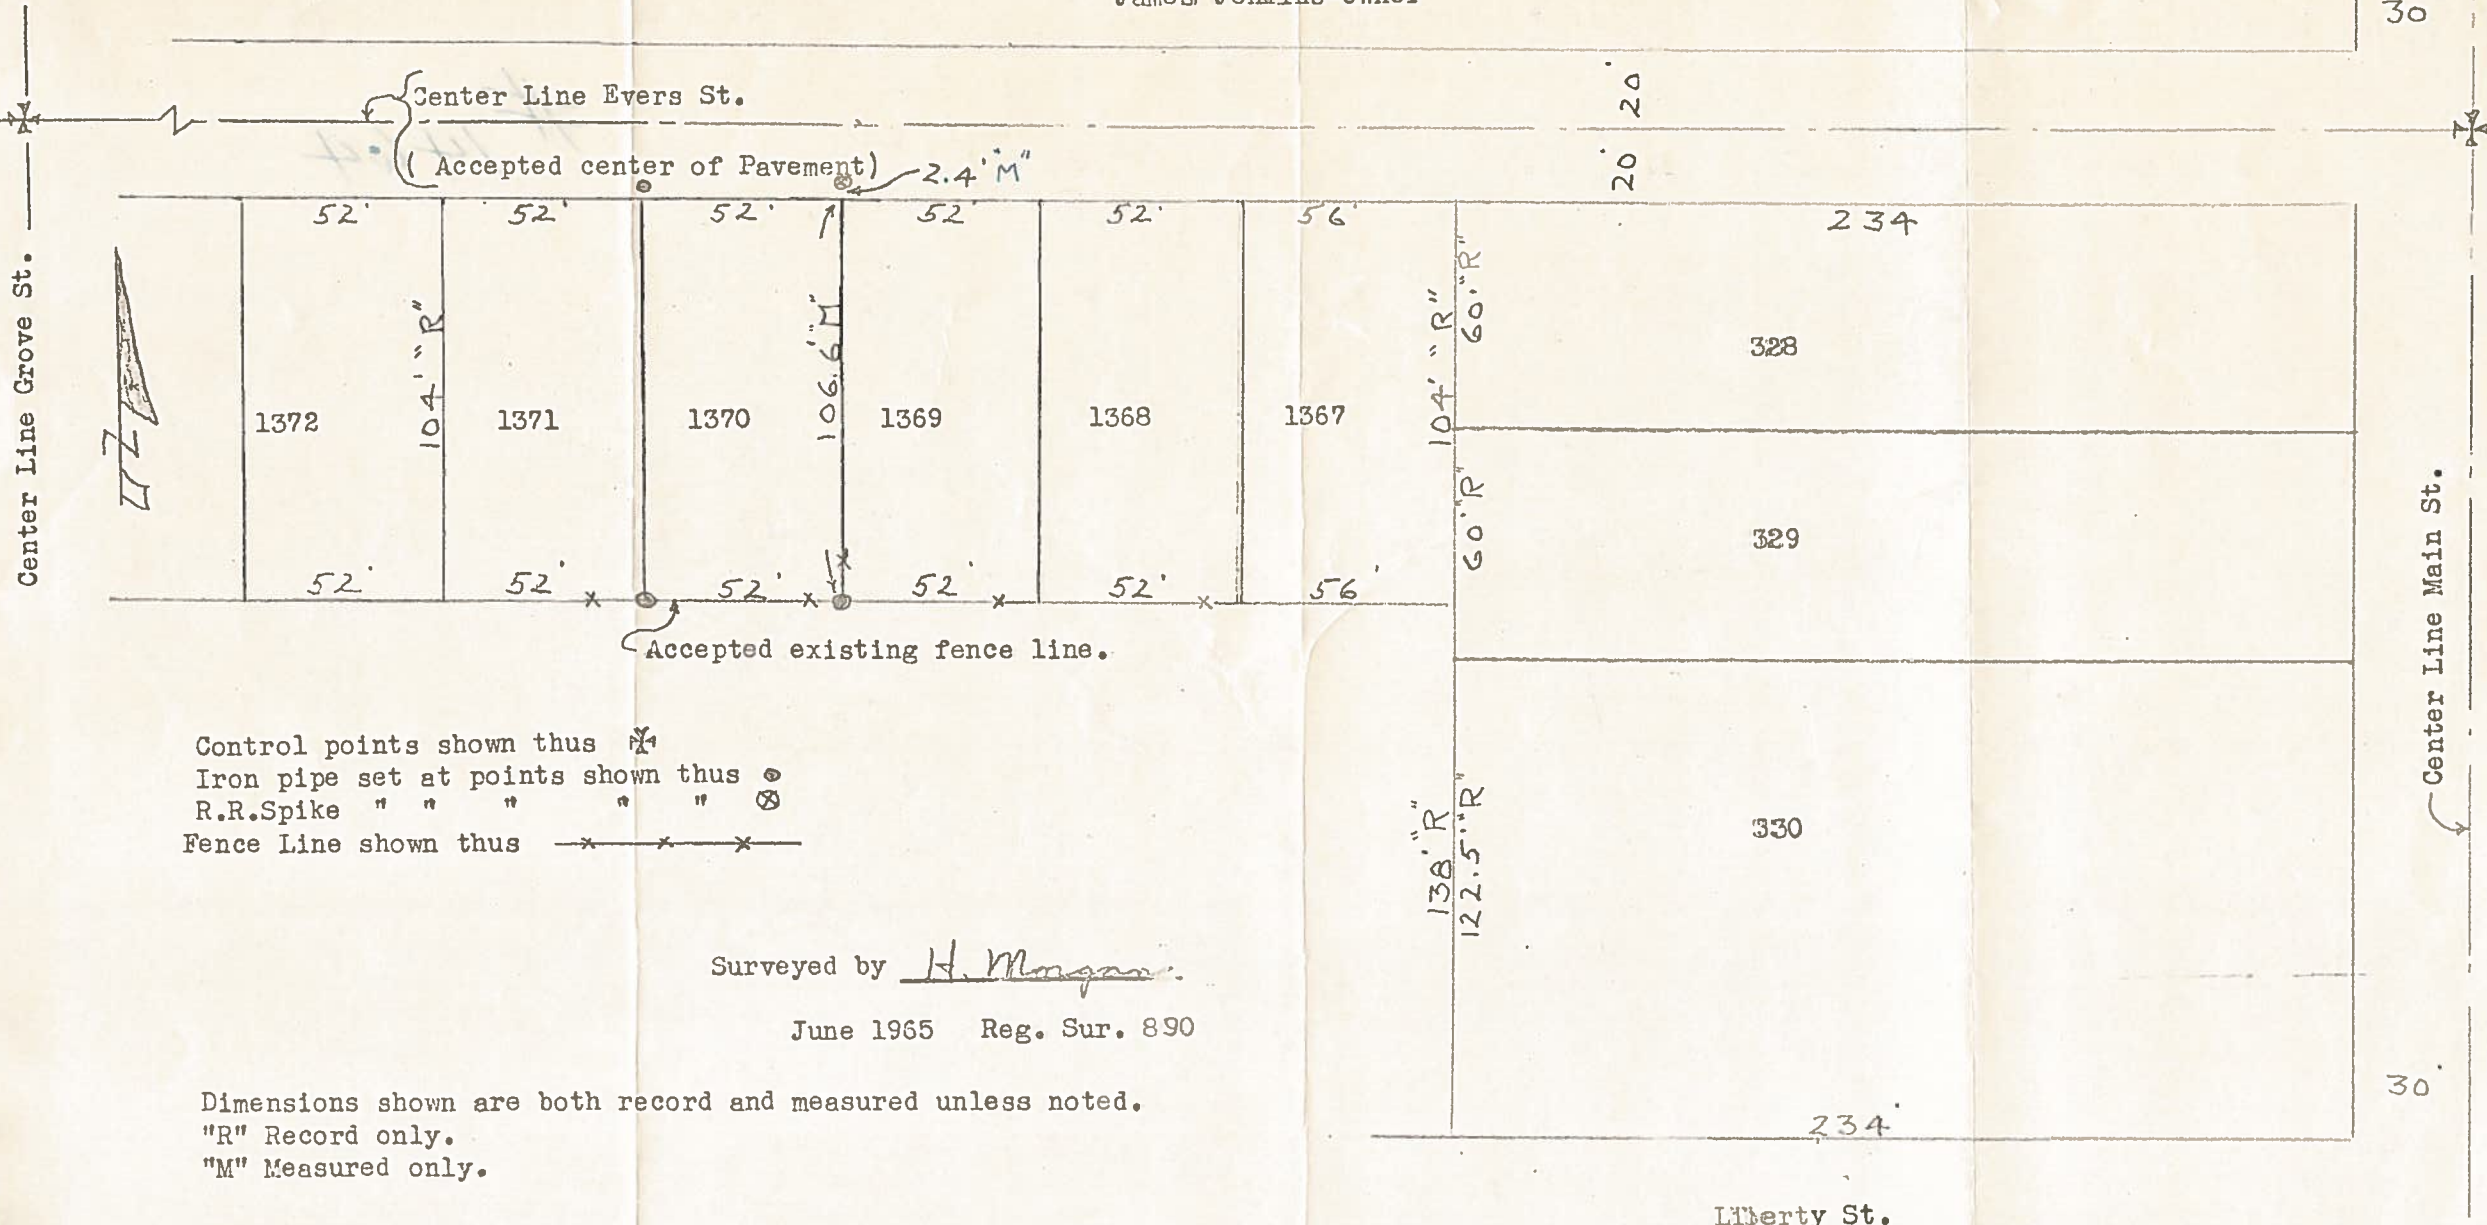 30
Center Line Evers St.
( Accepted center of Pavement)
2.4' "M"
20' 20'
52' 52' 52' 52' 52' 56' 234
Center Line Grove St.
104' "R"
106.6' "M"
104' "R"
60' "R"
328
1372 1371 1370 1369 1368 1367
60' "R"
329
52' 52' 52' 52' 52' 56'
Accepted existing fence line.
Center Line Main St.
Control points shown thus
Iron pipe set at points shown thus
R.R.Spike " " " " "
Fence Line shown thus
138' "R"
122.5' "R"
330
Surveyed by H. Morgan.
June 1965 Reg. Sur. 890
30'
Dimensions shown are both record and measured unless noted.
"R" Record only.
"M" Measured only.
234'
Liberty St.